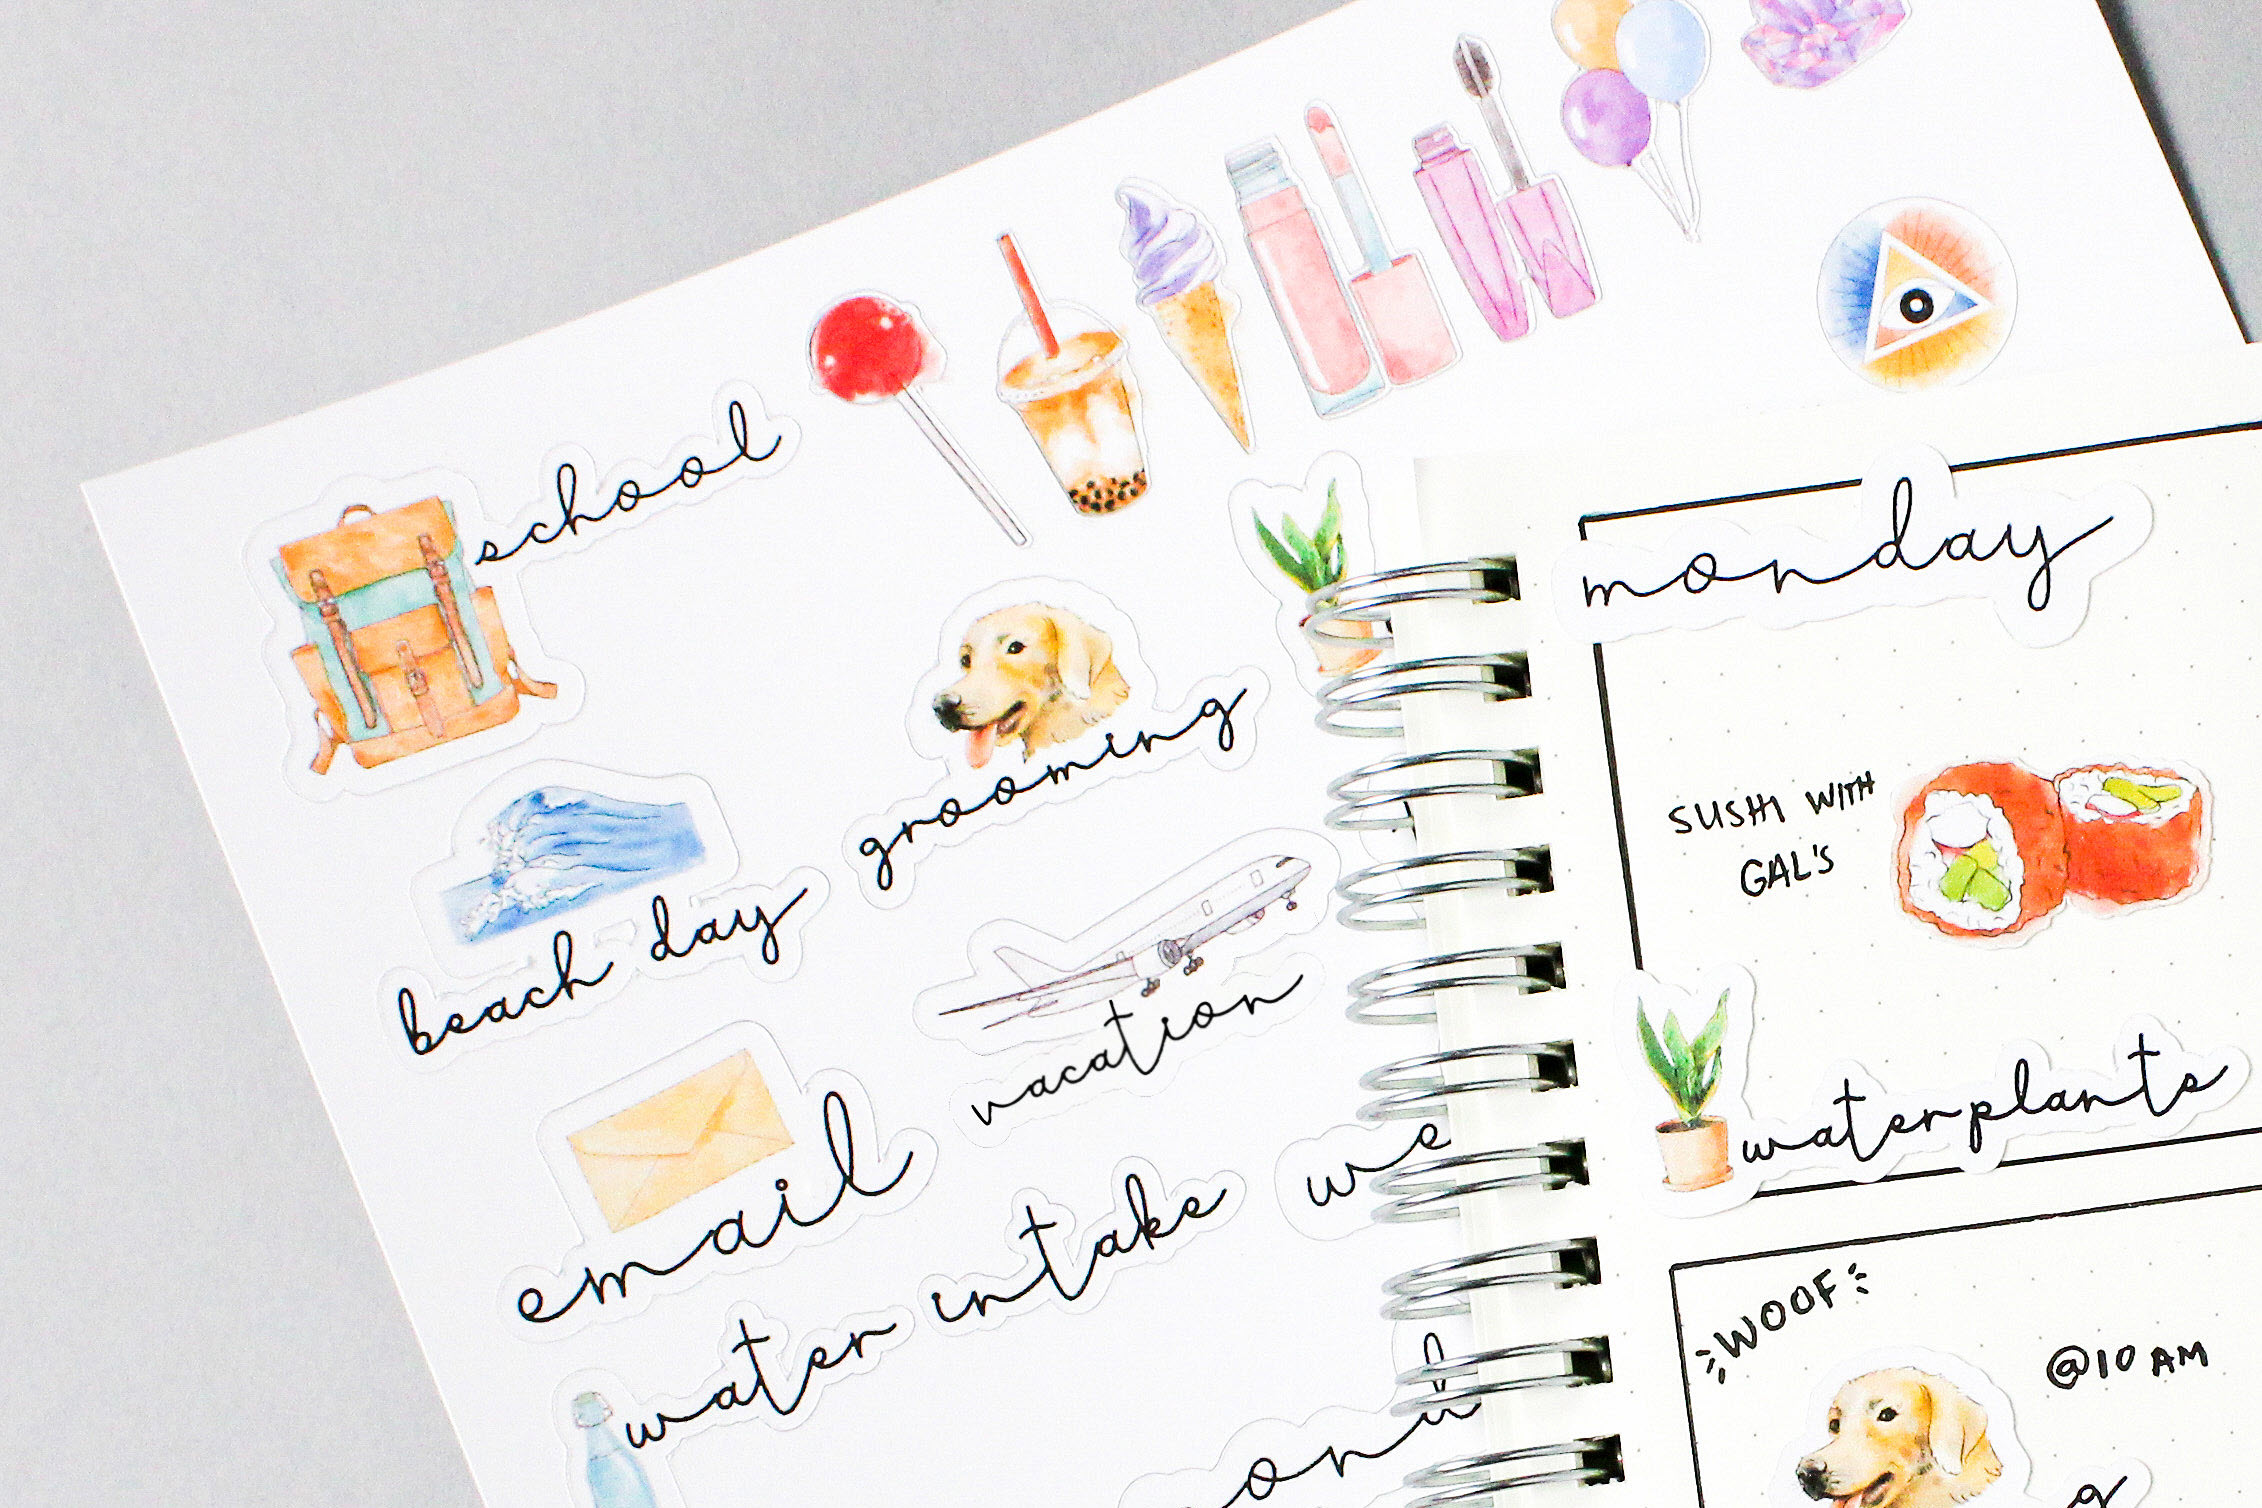 school
grooming
beach day
vacation
email
water intake
we
ond
monday
SUSHI WITH
GAL'S
waterplants
WOOF
@10 AM
g